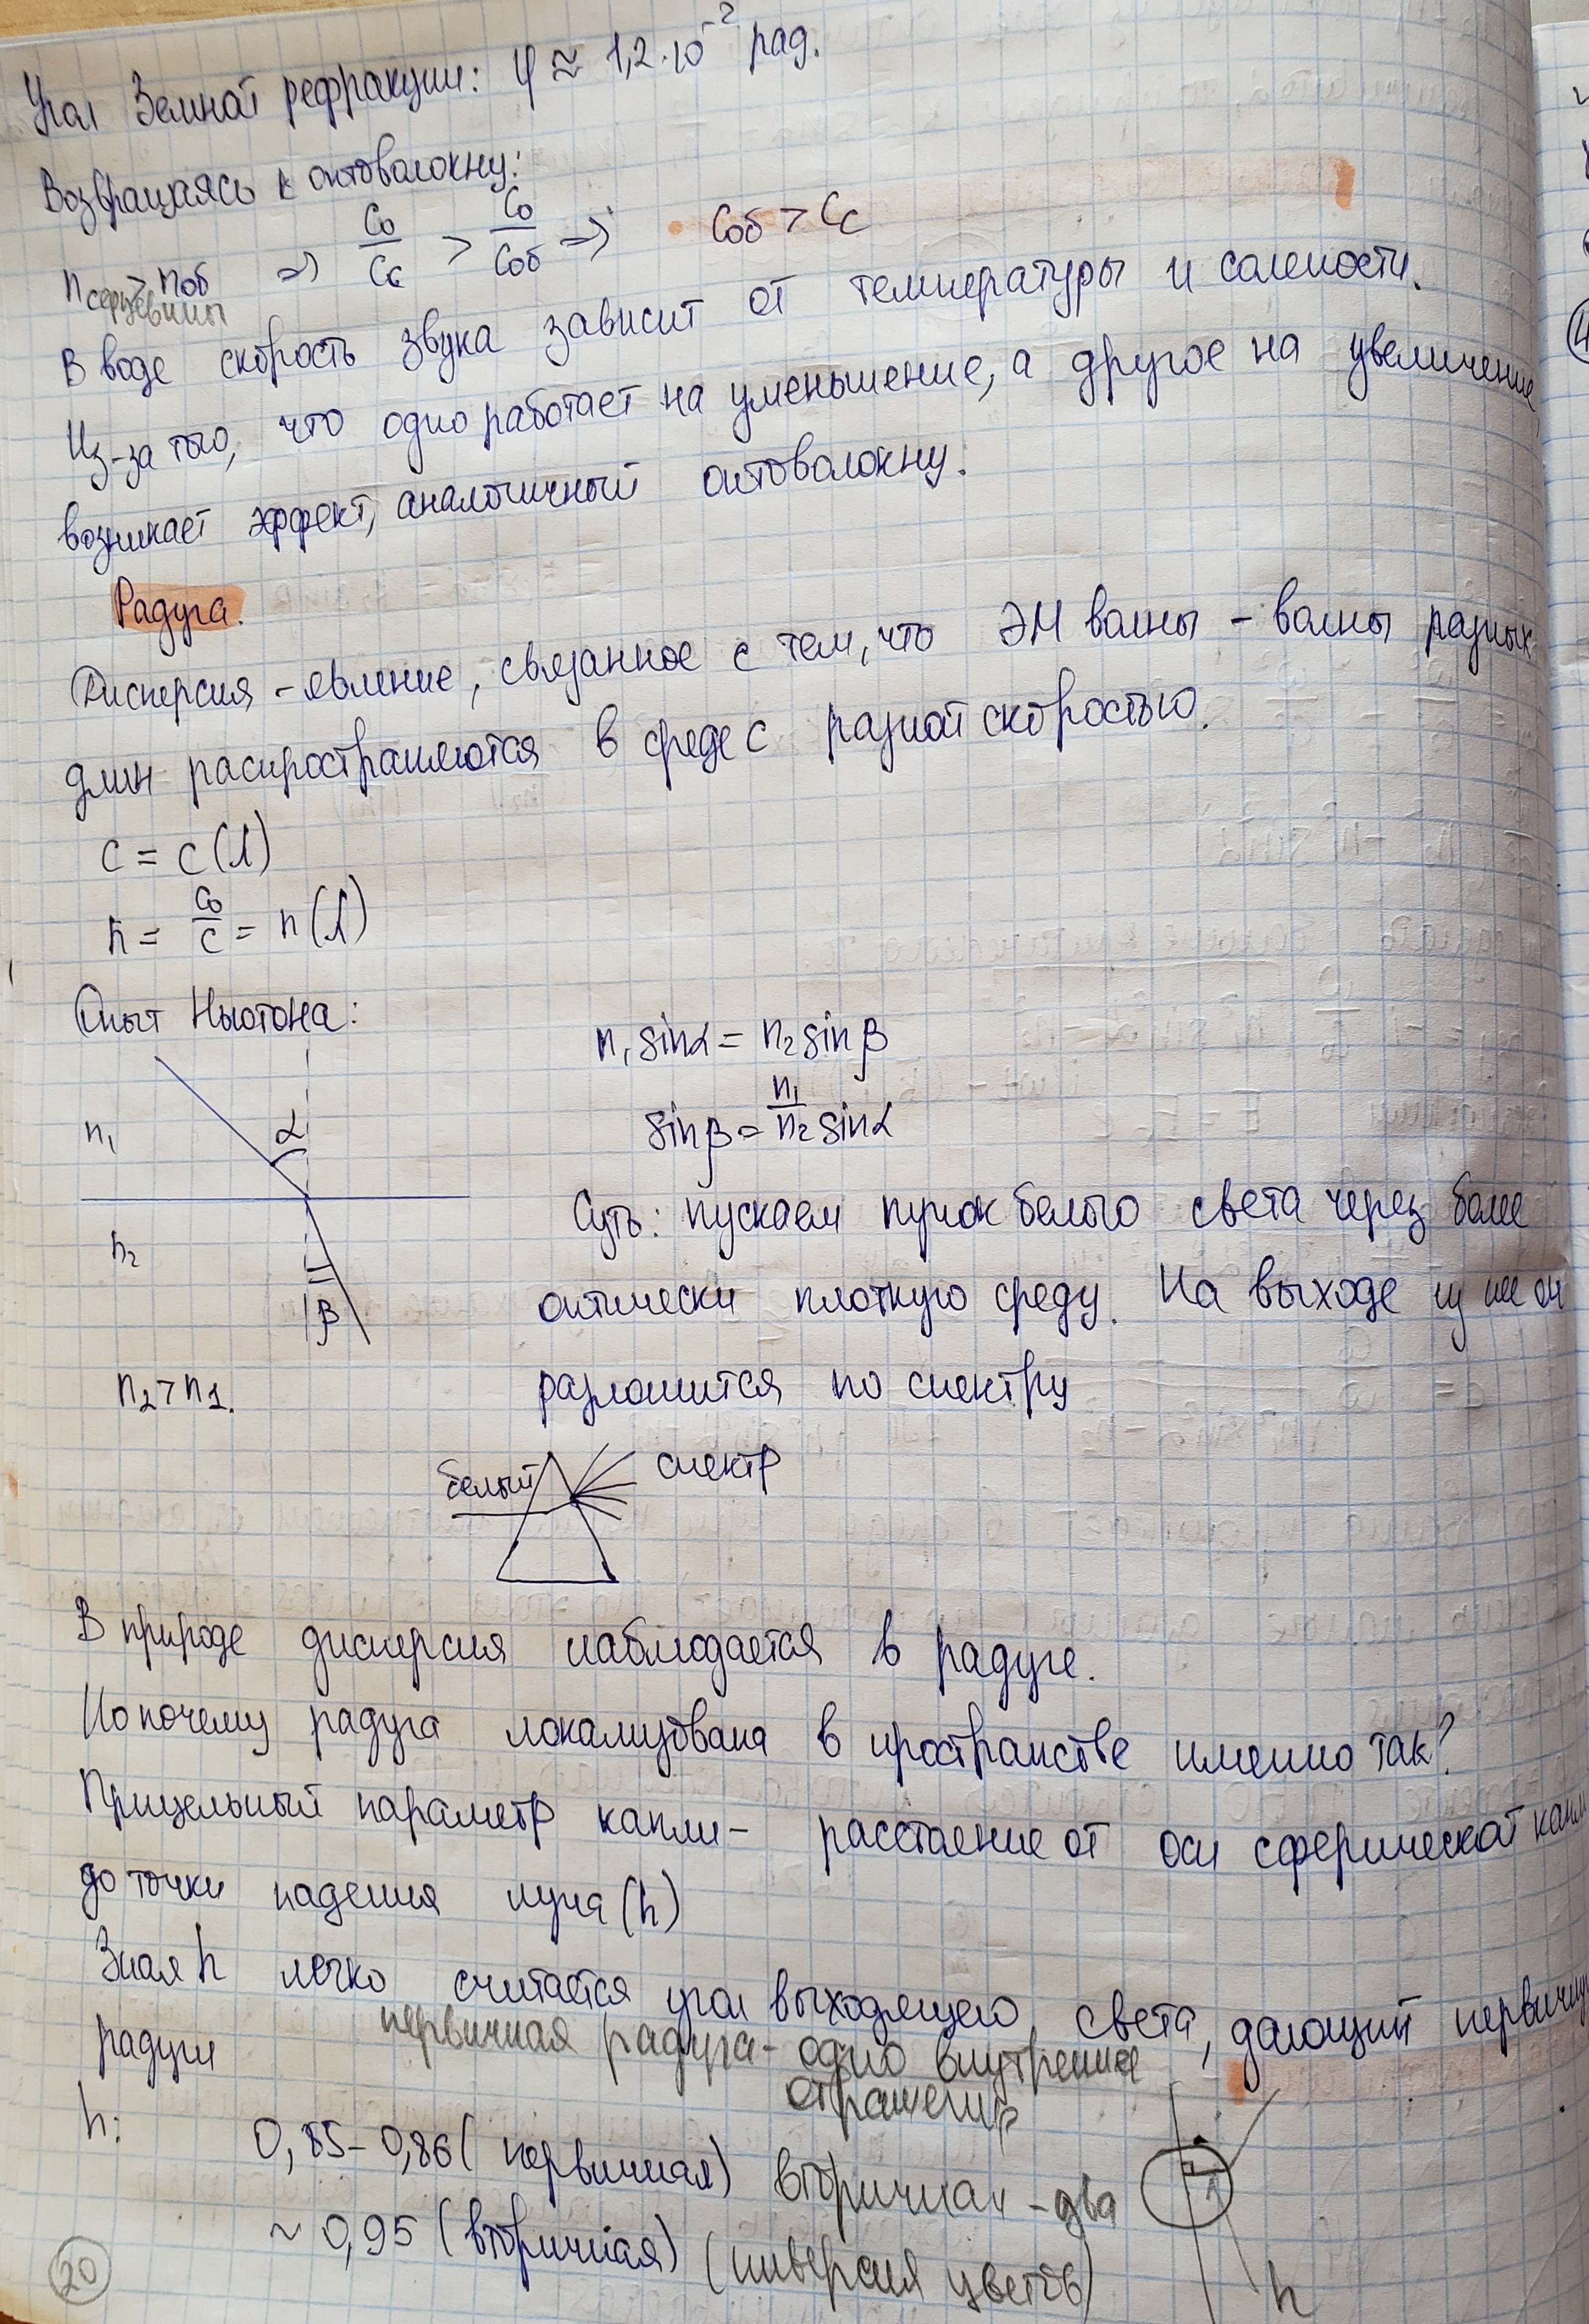 Угол Земной рефракции: φ ≈ 1,2·10⁻² рад.
Возвращаясь к оптоволокну:
n сердцевины > nоб ⇒ C₀/Cс > C₀/Cоб ⇒ Cоб > Cс
В воде скорость звука зависит от температуры и солености.
Из-за того, что одно работает на уменьшение, а другое на увеличение,
возникает эффект, аналогичный оптоволокну.
Радуга.
Дисперсия - явление, связанное с тем, что ЭМ волны - волны разных
длин распространяются в среде с разной скоростью.
c = c(λ)
n = c₀/c = n(λ)
Опыт Ньютона:
n₁ sinα = n₂ sinβ
sinβ = n₁/n₂ sinα
n₁
α
n₂
β
n₂ > n₁.
Суть: пускаем пучок белого света через более
оптически плотную среду. На выходе из нее он
разложится по спектру
белый
спектр
В природе дисперсия наблюдается в радуге.
Но почему радуга локализована в пространстве именно так?
Прицельный параметр капли - расстояние от оси сферической капли
до точки падения луча (h)
Зная h легко считается угол выходящего света, дающий первичную
радуги
первичная радуга - одно внутреннее
отражение
h: 0,85 - 0,86 (первичная)
вторичная - два
~ 0,95 (вторичная)
(инверсия цветов)
h
20